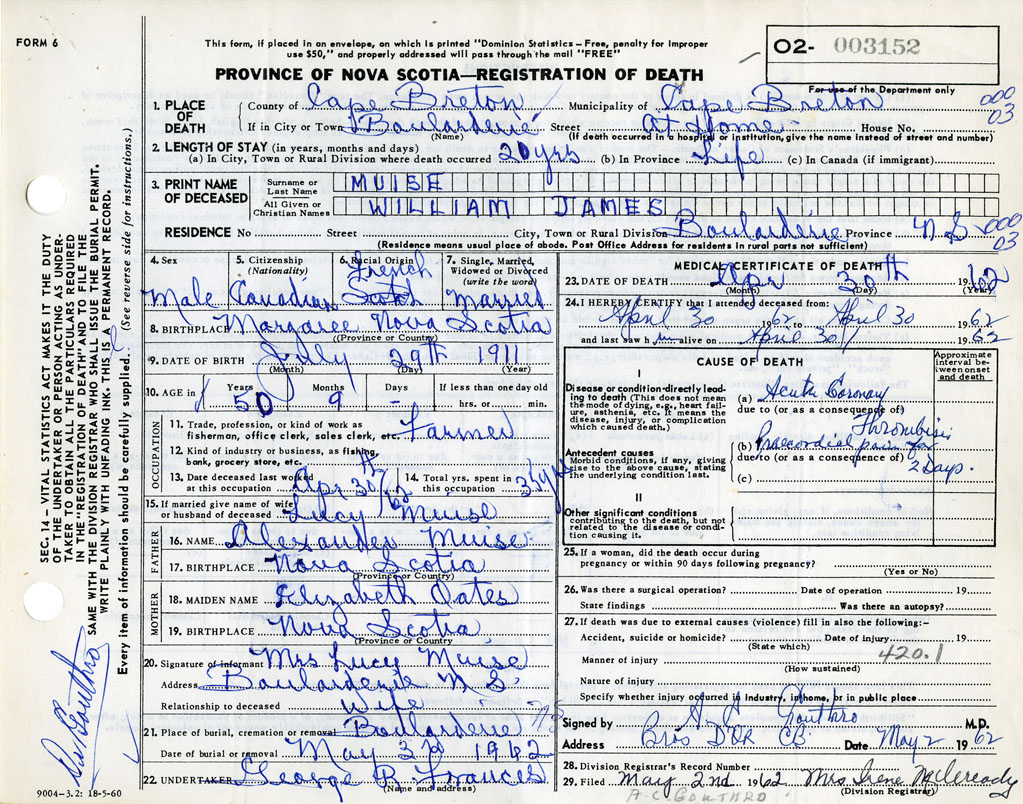 FORM 6
This form, if placed in an envelope, on which is printed "Dominion Statistics – Free, penalty for improper
use $50," and properly addressed will pass through the mail "FREE"
02- 003152
For use of the Department only
PROVINCE OF NOVA SCOTIA—REGISTRATION OF DEATH
000
03
1. PLACE OF DEATH
County of Cape Breton Municipality of Cape Breton
If in City or Town Boularderie Street At Home House No.
(Name) (If death occurred in a hospital or institution, give the name instead of street and number)
2. LENGTH OF STAY (in years, months and days)
(a) In City, Town or Rural Division where death occurred 20 yrs (b) In Province Life (c) In Canada (if immigrant)
3. PRINT NAME OF DECEASED
Surname or Last Name MUISE
All Given or Christian Names WILLIAM JAMES
RESIDENCE No Street City, Town or Rural Division Boularderie Province N.S
000
03
(Residence means usual place of abode. Post Office Address for residents in rural parts not sufficient)
4. Sex Male
5. Citizenship (Nationality) Canadian
6. Racial Origin French Scotch
7. Single, Married, Widowed or Divorced (write the word) Married
8. BIRTHPLACE Margaree Nova Scotia
(Province or Country)
9. DATE OF BIRTH July 29th 1911
(Month) (Day) (Year)
10. AGE in Years 50 Months 9 Days – If less than one day old hrs. or min.
OCCUPATION
11. Trade, profession, or kind of work as fisherman, office clerk, sales clerk, etc. Farmer
12. Kind of industry or business, as fishing, bank, grocery store, etc.
13. Date deceased last worked at this occupation Apr 30th/62
14. Total yrs. spent in this occupation 3 yrs
15. If married give name of wife or husband of deceased Lucy Muise
FATHER
16. NAME Alexander Muise
17. BIRTHPLACE Nova Scotia
(Province or Country)
MOTHER
18. MAIDEN NAME Elizabeth Oates
19. BIRTHPLACE Nova Scotia
(Province or Country)
20. Signature of informant Mrs Lucy Muise
Address Boularderie N S
Relationship to deceased Wife
21. Place of burial, cremation or removal Boularderie N S
Date of burial or removal May 3rd 1962
22. UNDERTAKER George R. Frances
(Name and address)
9004-3.2: 18-5-60
MEDICAL CERTIFICATE OF DEATH
23. DATE OF DEATH Apr 30th 1962
(Month) (Day) (Year)
24. I HEREBY CERTIFY that I attended deceased from:
April 30 1962 to April 30 1962
and last saw him alive on April 30 1962
CAUSE OF DEATH
Approximate interval between onset and death
I
Disease or condition directly leading to death (This does not mean the mode of dying, e.g., heart failure, asthenia, etc. It means the disease, injury, or complication which caused death.)
(a) Acute Coronary
due to (or as a consequence of)
Thrombisis
(b) Praecordial pain for
due to (or as a consequence of)
2 Days.
(c)
Antecedent causes
Morbid conditions, if any, giving rise to the above cause, stating the underlying condition last.
II
Other significant conditions
contributing to the death, but not related to the disease or condition causing it.
25. If a woman, did the death occur during pregnancy or within 90 days following pregnancy?
(Yes or No)
26. Was there a surgical operation? Date of operation 19
State findings Was there an autopsy?
27. If death was due to external causes (violence) fill in also the following:–
Accident, suicide or homicide? Date of injury 19
(State which)
420.1
Manner of injury
(How sustained)
Nature of injury
Specify whether injury occurred in industry, in home, or in public place
Signed by A J Gouthro M.D.
Address Bras D'OR CB Date May 2 1962
28. Division Registrar's Record Number
29. Filed May 2nd 1962 Mrs Irene McCready
(Division Registrar)
A.C. GOUTHRO
SEC. 14 – VITAL STATISTICS ACT MAKES IT THE DUTY
OF THE UNDERTAKER OR PERSON ACTING AS UNDER-
TAKER TO OBTAIN ALL THE PARTICULARS REQUIRED
IN THE "REGISTRATION OF DEATH" AND TO FILE THE
SAME WITH THE DIVISION REGISTRAR WHO SHALL ISSUE THE BURIAL PERMIT.
WRITE PLAINLY WITH UNFADING INK. THIS IS A PERMANENT RECORD.
Every item of information should be carefully supplied. (See reverse side for instructions.)
Gouthro